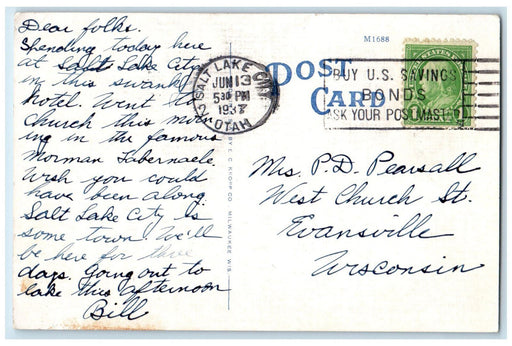 Dear folks.
Spending today here
at Salt Lake City
in this swank
hotel. Went to
Church this morn
ing in the famous
Morman Tabernacle
Wish you could
have been along.
Salt Lake City is
some town. We'll
be here for three
days. Going out to
lake this afternoon
Bill
M1688
SALT LAKE CITY
JUN 13
5 30 PM
1937
UTAH
POST
CARD
BUY U.S. SAVINGS
BONDS
ASK YOUR POSTMASTER
BY E. C. KROPP CO. MILWAUKEE, WIS.
Mrs. P.D. Pearsall
West Church St.
Evansville
Wisconsin